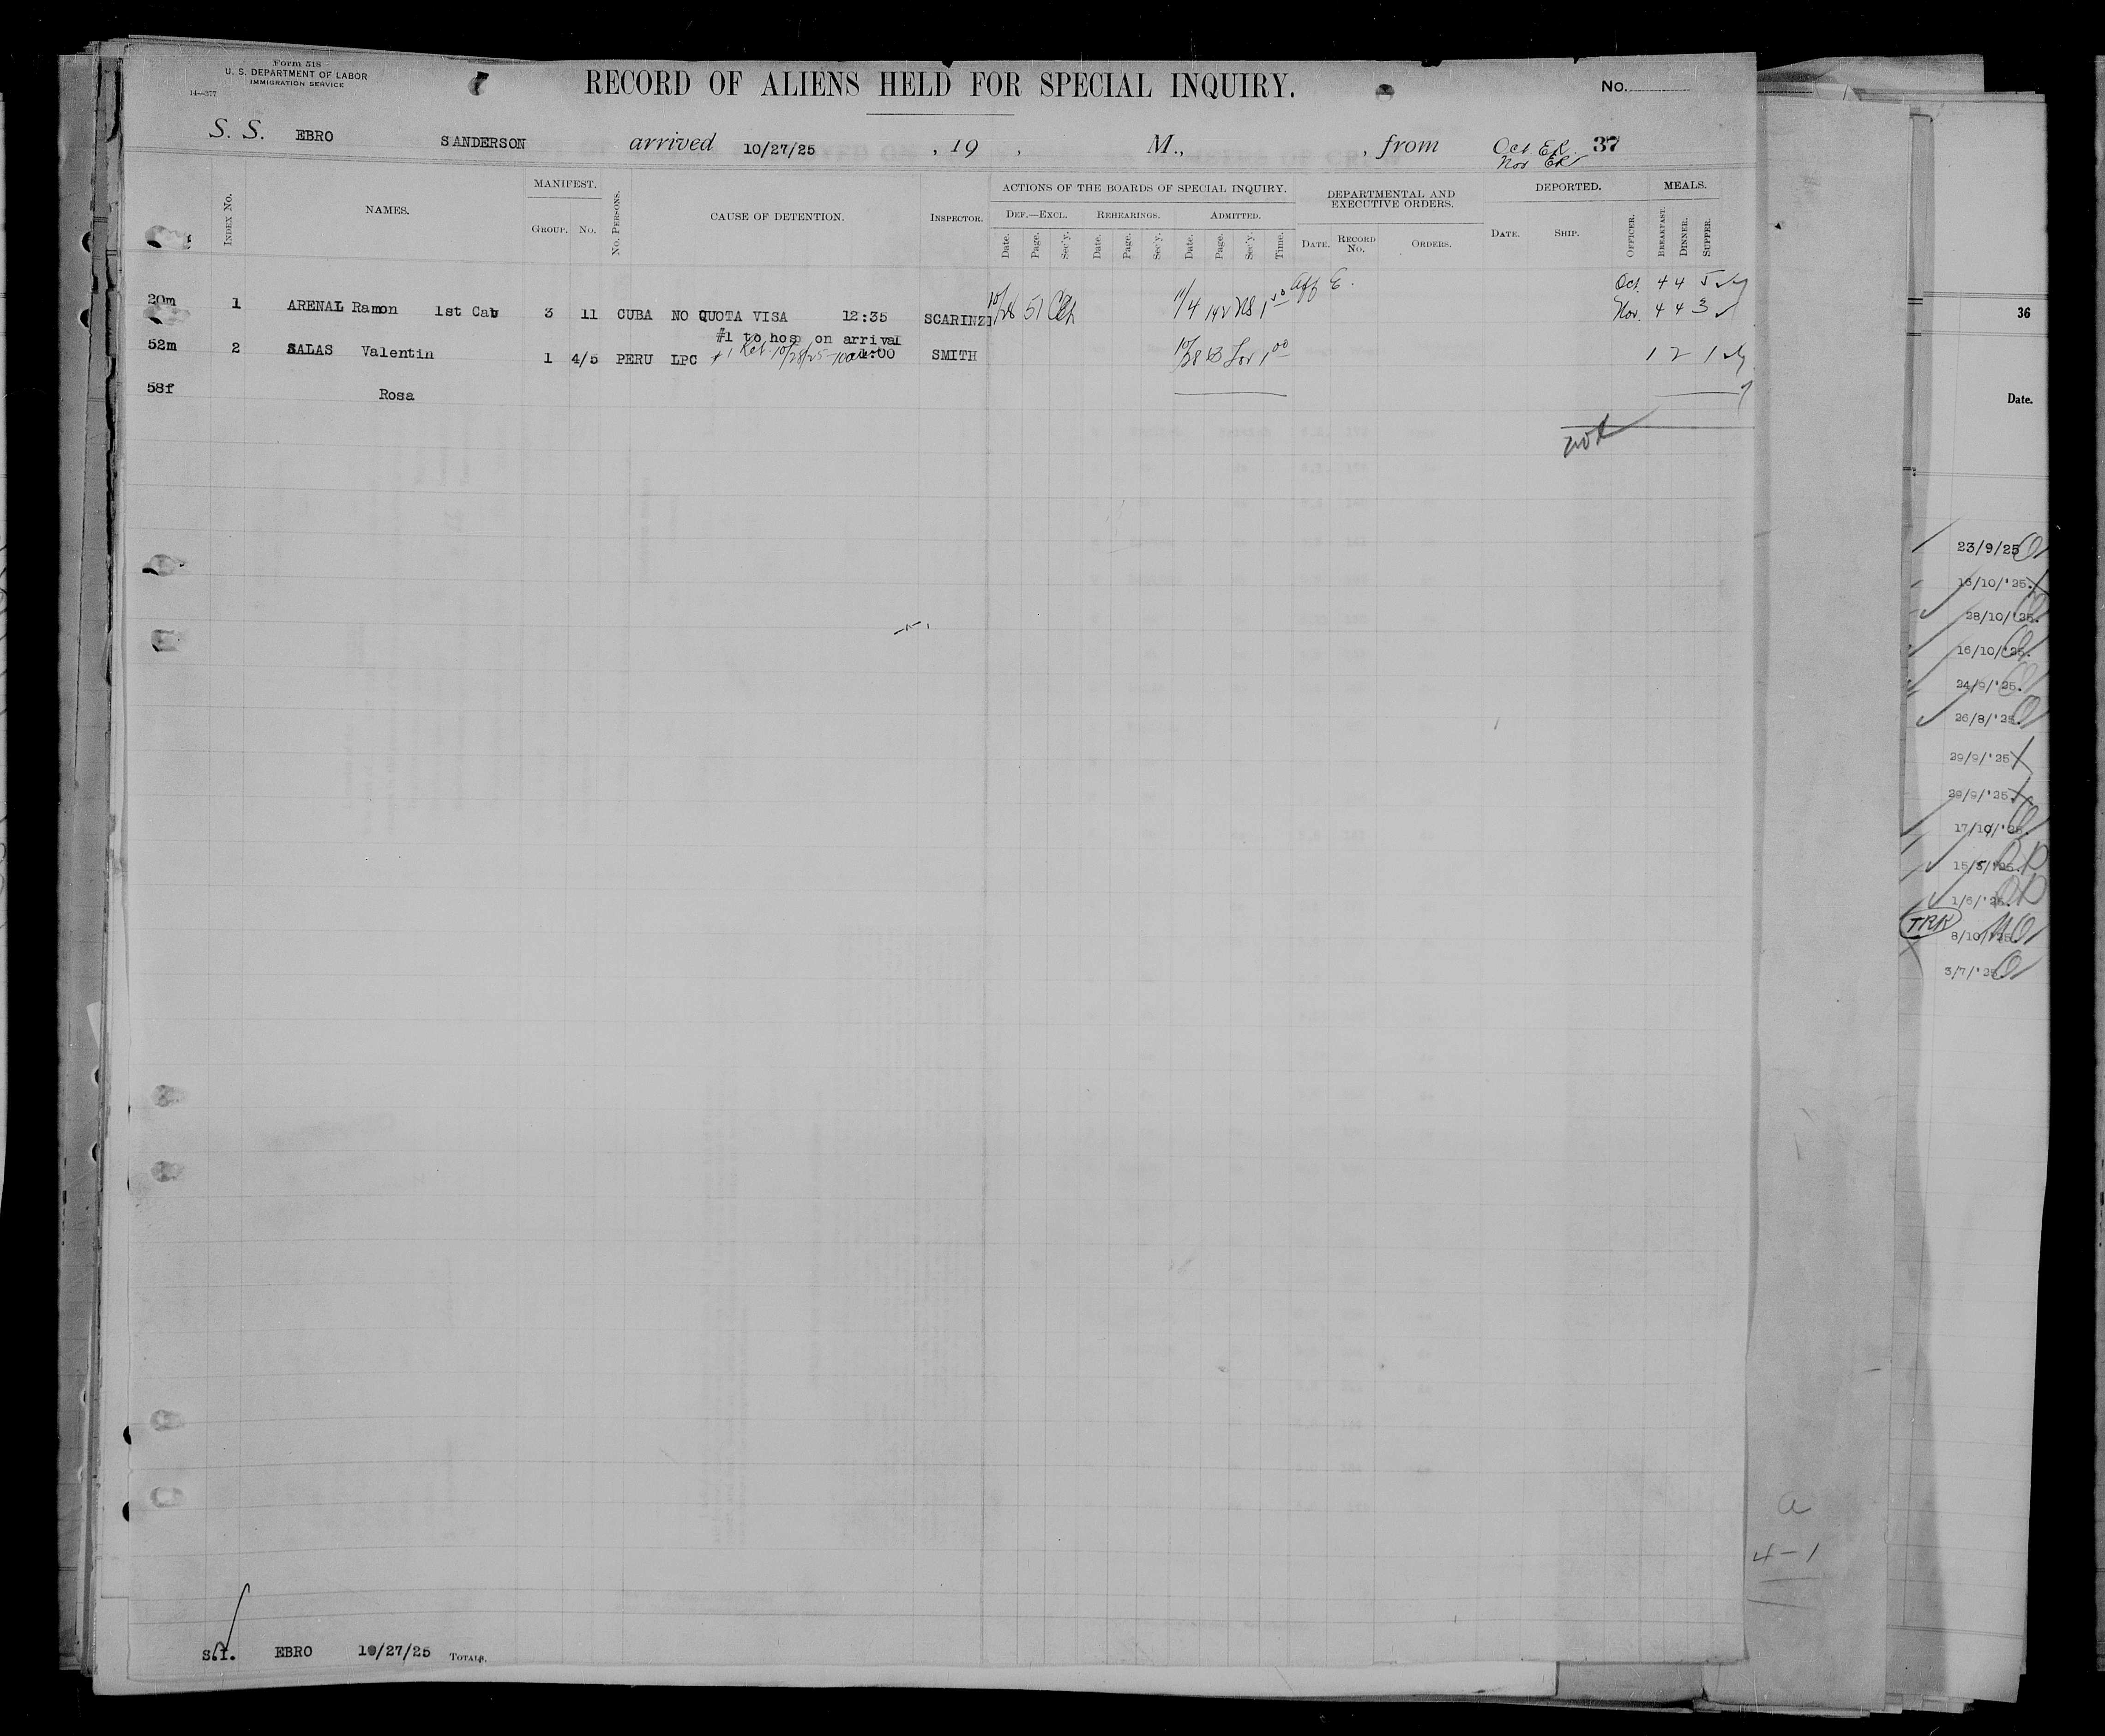 Form 518
U. S. DEPARTMENT OF LABOR
IMMIGRATION SERVICE
14—377
RECORD OF ALIENS HELD FOR SPECIAL INQUIRY.
No.
S. S. EBRO SANDERSON arrived 10/27/25 , 19 , M., , from Oct ER. 37
Nov ER
INDEX No. NAMES. MANIFEST. GROUP. No. No. PERSONS. CAUSE OF DETENTION. INSPECTOR. ACTIONS OF THE BOARDS OF SPECIAL INQUIRY. DEPARTMENTAL AND EXECUTIVE ORDERS. DEPORTED. MEALS.
DEF.—EXCL. REHEARINGS. ADMITTED.
Date. Page. Sec'y. Date. Page. Sec'y. Date. Page. Sec'y. Time. DATE. RECORD No. ORDERS. DATE. SHIP. OFFICER. BREAKFAST. DINNER. SUPPER.
Oct. 4 4 5
20m 1 ARENAL Ramon 1st Cab 3 11 CUBA NO QUOTA VISA 12:35 SCARINZI 10/28 51 11/4 142 Nov. 4 4 3
#1 to hosp on arrival
52m 2 SALAS Valentin 1 4/5 PERU LPC #1 Ret. 10/28/25 1:00 SMITH 10/28 1 00 1 2 1
58f Rosa
not
s.i. EBRO 10/27/25 TOTALS.
36
Date.
23/9/25
16/10/'25.
28/10/'25.
16/10/'25.
24/9/'25.
26/8/'25
29/9/'25
29/9/'25.
17/10/'25.
15/5/'25.
1/6/'25.
TRK
8/10/'25.
3/7/'25
a
4-1